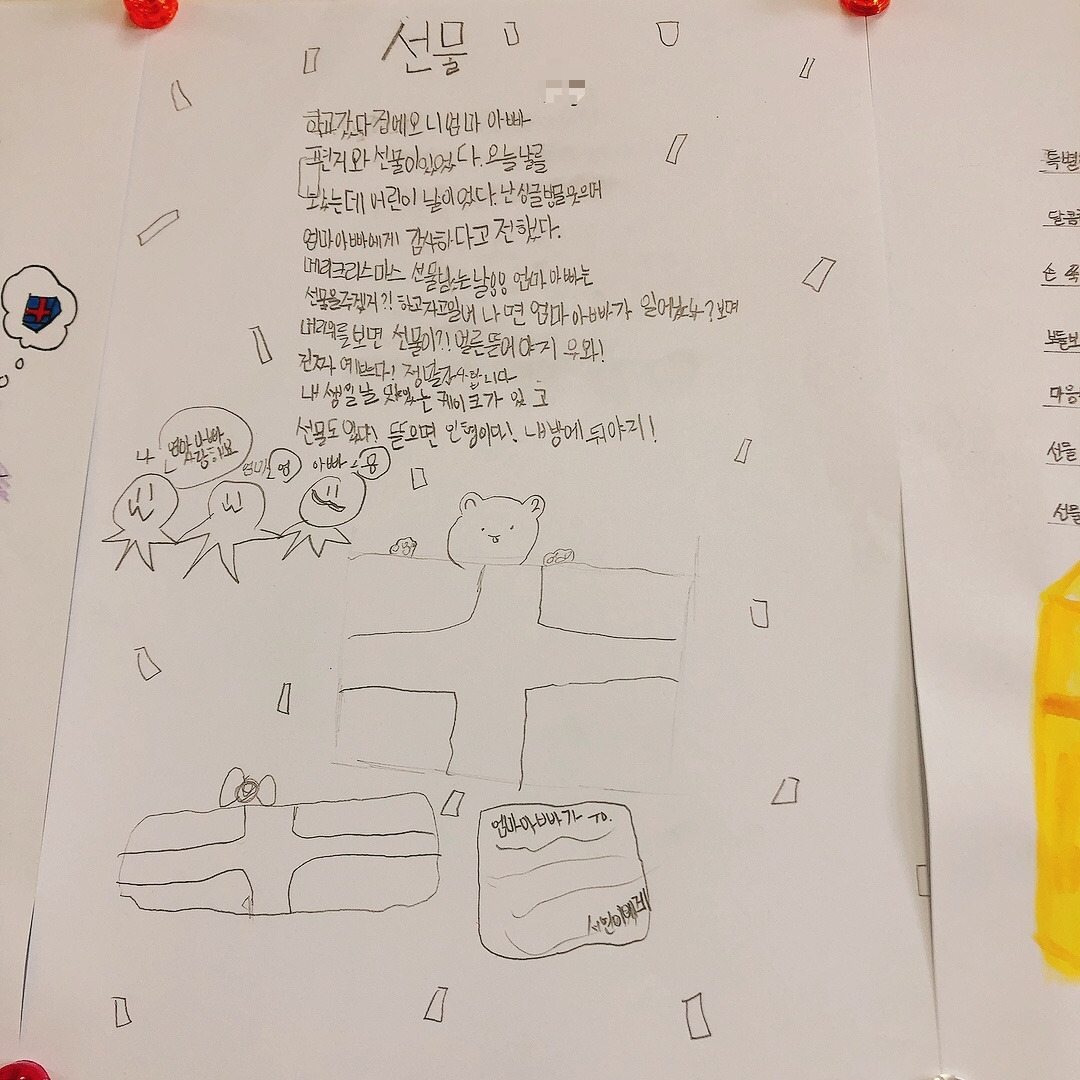 선물
학교갔다 집에오니 엄마 아빠
편지와 선물이있었다. 오늘 날를
보았는데 어린이 날이었다. 난 싱글벙글웃으며
엄마아빠에게 감사하다고 전했다.
메리크리스마스 선물 는날 엄마 아빠는
선물을주겠지?! 하고자고일어나면 엄마아빠가 일어 ? 보면
머리위를보면 선물이?! 얼른뜯어야지 우와!
진짜 예쁘다! 정말감사합니다
내 생일날 맛있는 케이크가 있고
선물도 있다! 뜯으면 인형이다! 내방에 둬야지!
나 엄마 아빠 사랑해요
엄마는 엉 아빠는 응
엄마아빠가 To.
세인이에게
특별
달콤
손 꼭
보들보
마음
선물
선물